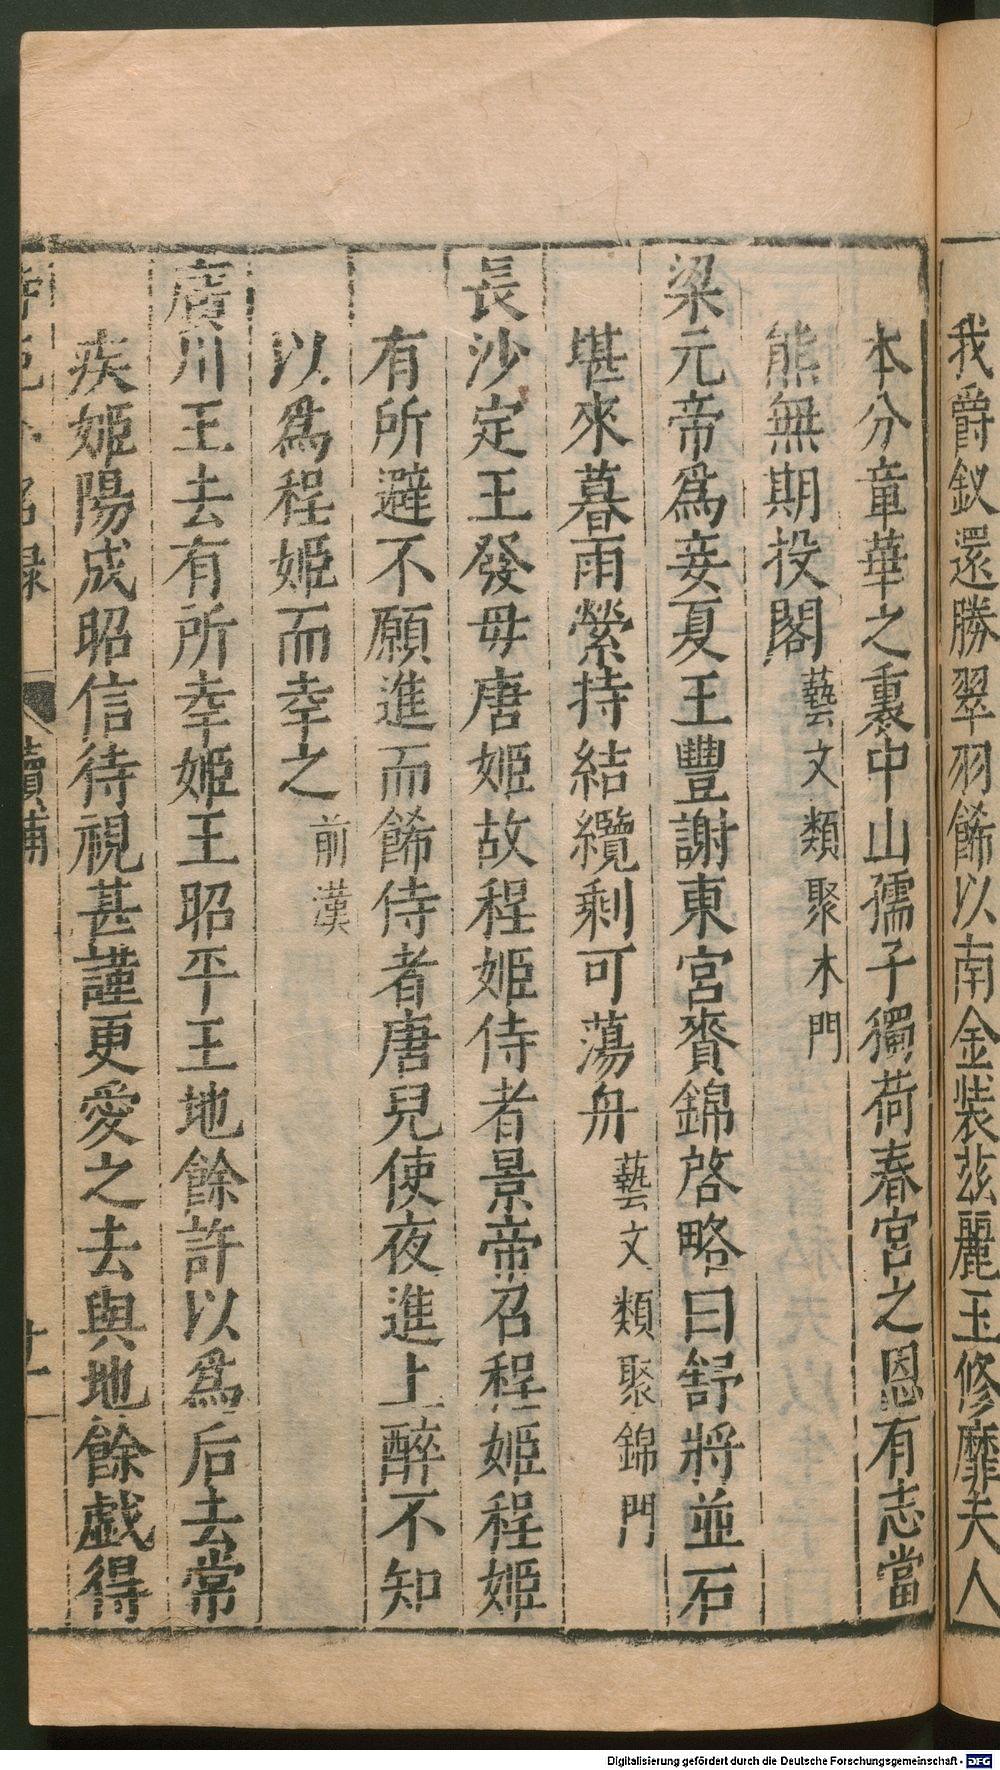 我爵釵還勝翠羽飾以南金裝茲麗玉修靡夫人
本分章華之裏中山孺子獨荷春宮之恩有志當
熊無期投閣藝文類聚木門
梁元帝爲妾夏王豐謝東宮賚錦啓略曰舒將並石
堪來暮雨縈持結纜剩可蕩舟藝文類聚錦門
長沙定王發毋唐姬故程姬侍者景帝召程姬程姬
有所避不願進而餙侍者唐兒使夜進上醉不知
以爲程姬而幸之前漢
廣川王去有所幸姬王昭平王地餘許以爲后去常
疾姬陽成昭信待視甚謹更愛之去與地餘戲得
續補
廿一
Digitalisierung gefördert durch die Deutsche Forschungsgemeinschaft - DFG